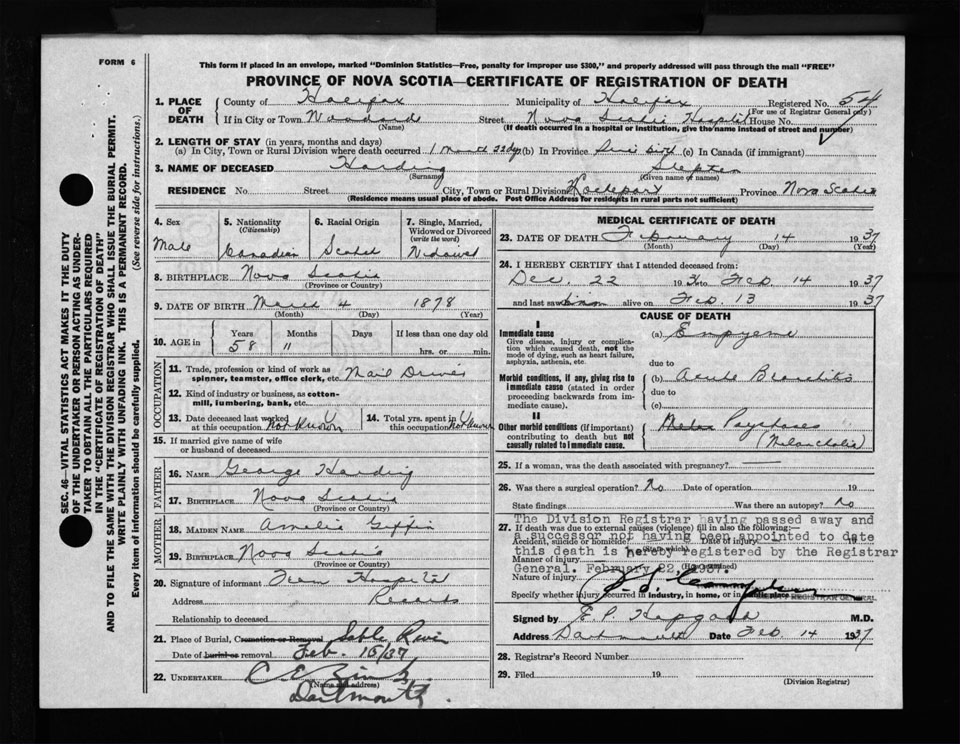 FORM 6
This form if placed in an envelope, marked "Dominion Statistics—Free, penalty for improper use $300," and properly addressed will pass through the mail "FREE"
PROVINCE OF NOVA SCOTIA—CERTIFICATE OF REGISTRATION OF DEATH
SEC. 46—VITAL STATISTICS ACT MAKES IT THE DUTY
OF THE UNDERTAKER OR PERSON ACTING AS UNDER-
TAKER TO OBTAIN ALL THE PARTICULARS REQUIRED
IN THE "CERTIFICATE OF REGISTRATION OF DEATH"
AND TO FILE THE SAME WITH THE DIVISION REGISTRAR WHO SHALL ISSUE THE BURIAL PERMIT.
WRITE PLAINLY WITH UNFADING INK. THIS IS A PERMANENT RECORD.
Every item of information should be carefully supplied. (See reverse side for instructions.)
1. PLACE OF DEATH County of Halifax Municipality of Halifax Registered No. 54
(For use of Registrar General only)
If in City or Town Street Nova Scotia Hospital House No.
(Name) (If death occurred in a hospital or institution, give the name instead of street and number)
2. LENGTH OF STAY (in years, months and days)
(a) In City, Town or Rural Division where death occurred 1 Month 22 dys (b) In Province Since birth (c) In Canada (if immigrant)
3. NAME OF DECEASED Harding Stephen
(Surname) (Given name or names)
RESIDENCE No. Street City, Town or Rural Division Lockeport Province Nova Scotia
(Residence means usual place of abode. Post Office Address for residents in rural parts not sufficient)
4. Sex Male
5. Nationality (Citizenship) Canadian
6. Racial Origin Scotch
7. Single, Married, Widowed or Divorced (write the word) Widowed
8. BIRTHPLACE Nova Scotia
(Province or Country)
9. DATE OF BIRTH March 4 1878
(Month) (Day) (Year)
10. AGE in Years 58 Months 11 Days If less than one day old hrs. or min.
OCCUPATION
11. Trade, profession or kind of work as spinner, teamster, office clerk, etc. Mail Driver
12. Kind of industry or business, as cotton-mill, lumbering, bank, etc.
13. Date deceased last worked at this occupation Not Known
14. Total yrs. spent in this occupation Not Known
15. If married give name of wife or husband of deceased
FATHER
16. NAME George Harding
17. BIRTHPLACE Nova Scotia
(Province or Country)
MOTHER
18. MAIDEN NAME Amelia Giffin
19. BIRTHPLACE Nova Scotia
(Province or Country)
20. Signature of informant From Hospital
Address Records
Relationship to deceased
21. Place of Burial, Cremation or Removal Sable River
Date of burial or removal Feb. 15/37
22. UNDERTAKER C. E.
(Name and address)
Dartmouth.
MEDICAL CERTIFICATE OF DEATH
23. DATE OF DEATH February 14 1937
(Month) (Day) (Year)
24. I HEREBY CERTIFY that I attended deceased from:
Dec. 22 1936 to Feb. 14 1937
and last saw him alive on Feb. 13 1937
CAUSE OF DEATH
I
Immediate cause (a) Empyema
Give disease, injury or complica-
tion which caused death, not the
mode of dying, such as heart failure,
asphyxia, asthenia, etc. due to
Morbid conditions, if any, giving rise to (b) Acute Bronchitis
immediate cause (stated in order due to
proceeding backwards from im-
mediate cause). (c)
II
Other morbid conditions (if important) Psychoses
contributing to death but not (Melancholia)
causally related to immediate cause.
25. If a woman, was the death associated with pregnancy? —
26. Was there a surgical operation? No Date of operation 19
State findings Was there an autopsy? No
27. If death was due to external causes (violence) fill in also the following:—
Accident, suicide or homicide? Date of injury 19
(State which)
Manner of injury
Nature of injury
Specify whether injury occurred in industry, in home, or in public place
The Division Registrar having passed away and
a successor not having been appointed to date
this death is hereby registered by the Registrar
General. February 22, 1937.
REGISTRAR GENERAL
Signed by M.D.
Address Dartmouth Date Feb 14 1937
28. Registrar's Record Number
29. Filed 19
(Division Registrar)